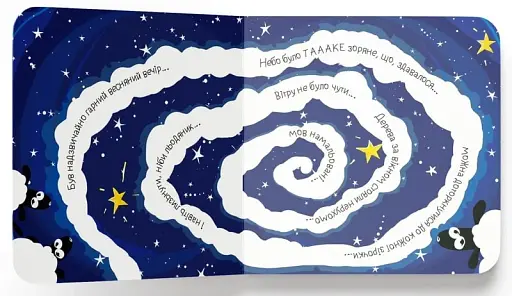 Був надзвичайно гарний весняний вечір...
Небо було ТАААКЕ зоряне, що, здавалося...
можна доторкнутися до кожної зірочки...
І навіть лизнути, ніби льодяник...
Вітру не було чути...
Дерева за вікном стояли нерухомо...
мов намальовані...